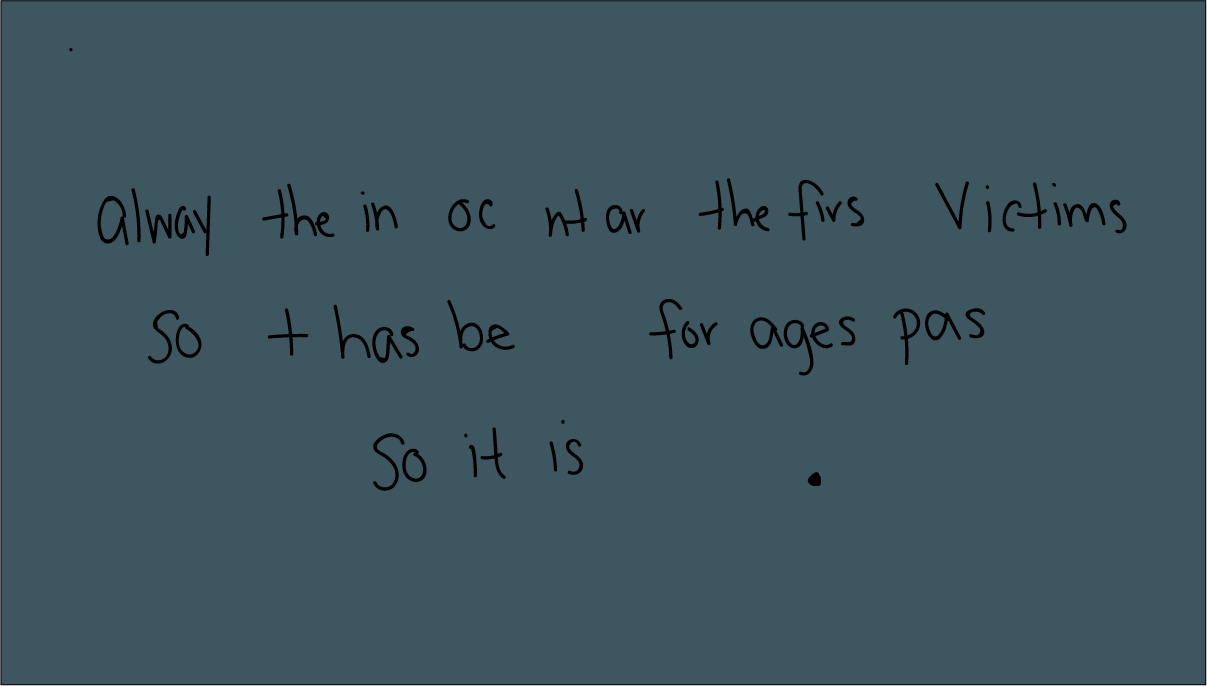 alway the in oc nt ar the firs Victims
So t has be for ages pas
So it is .